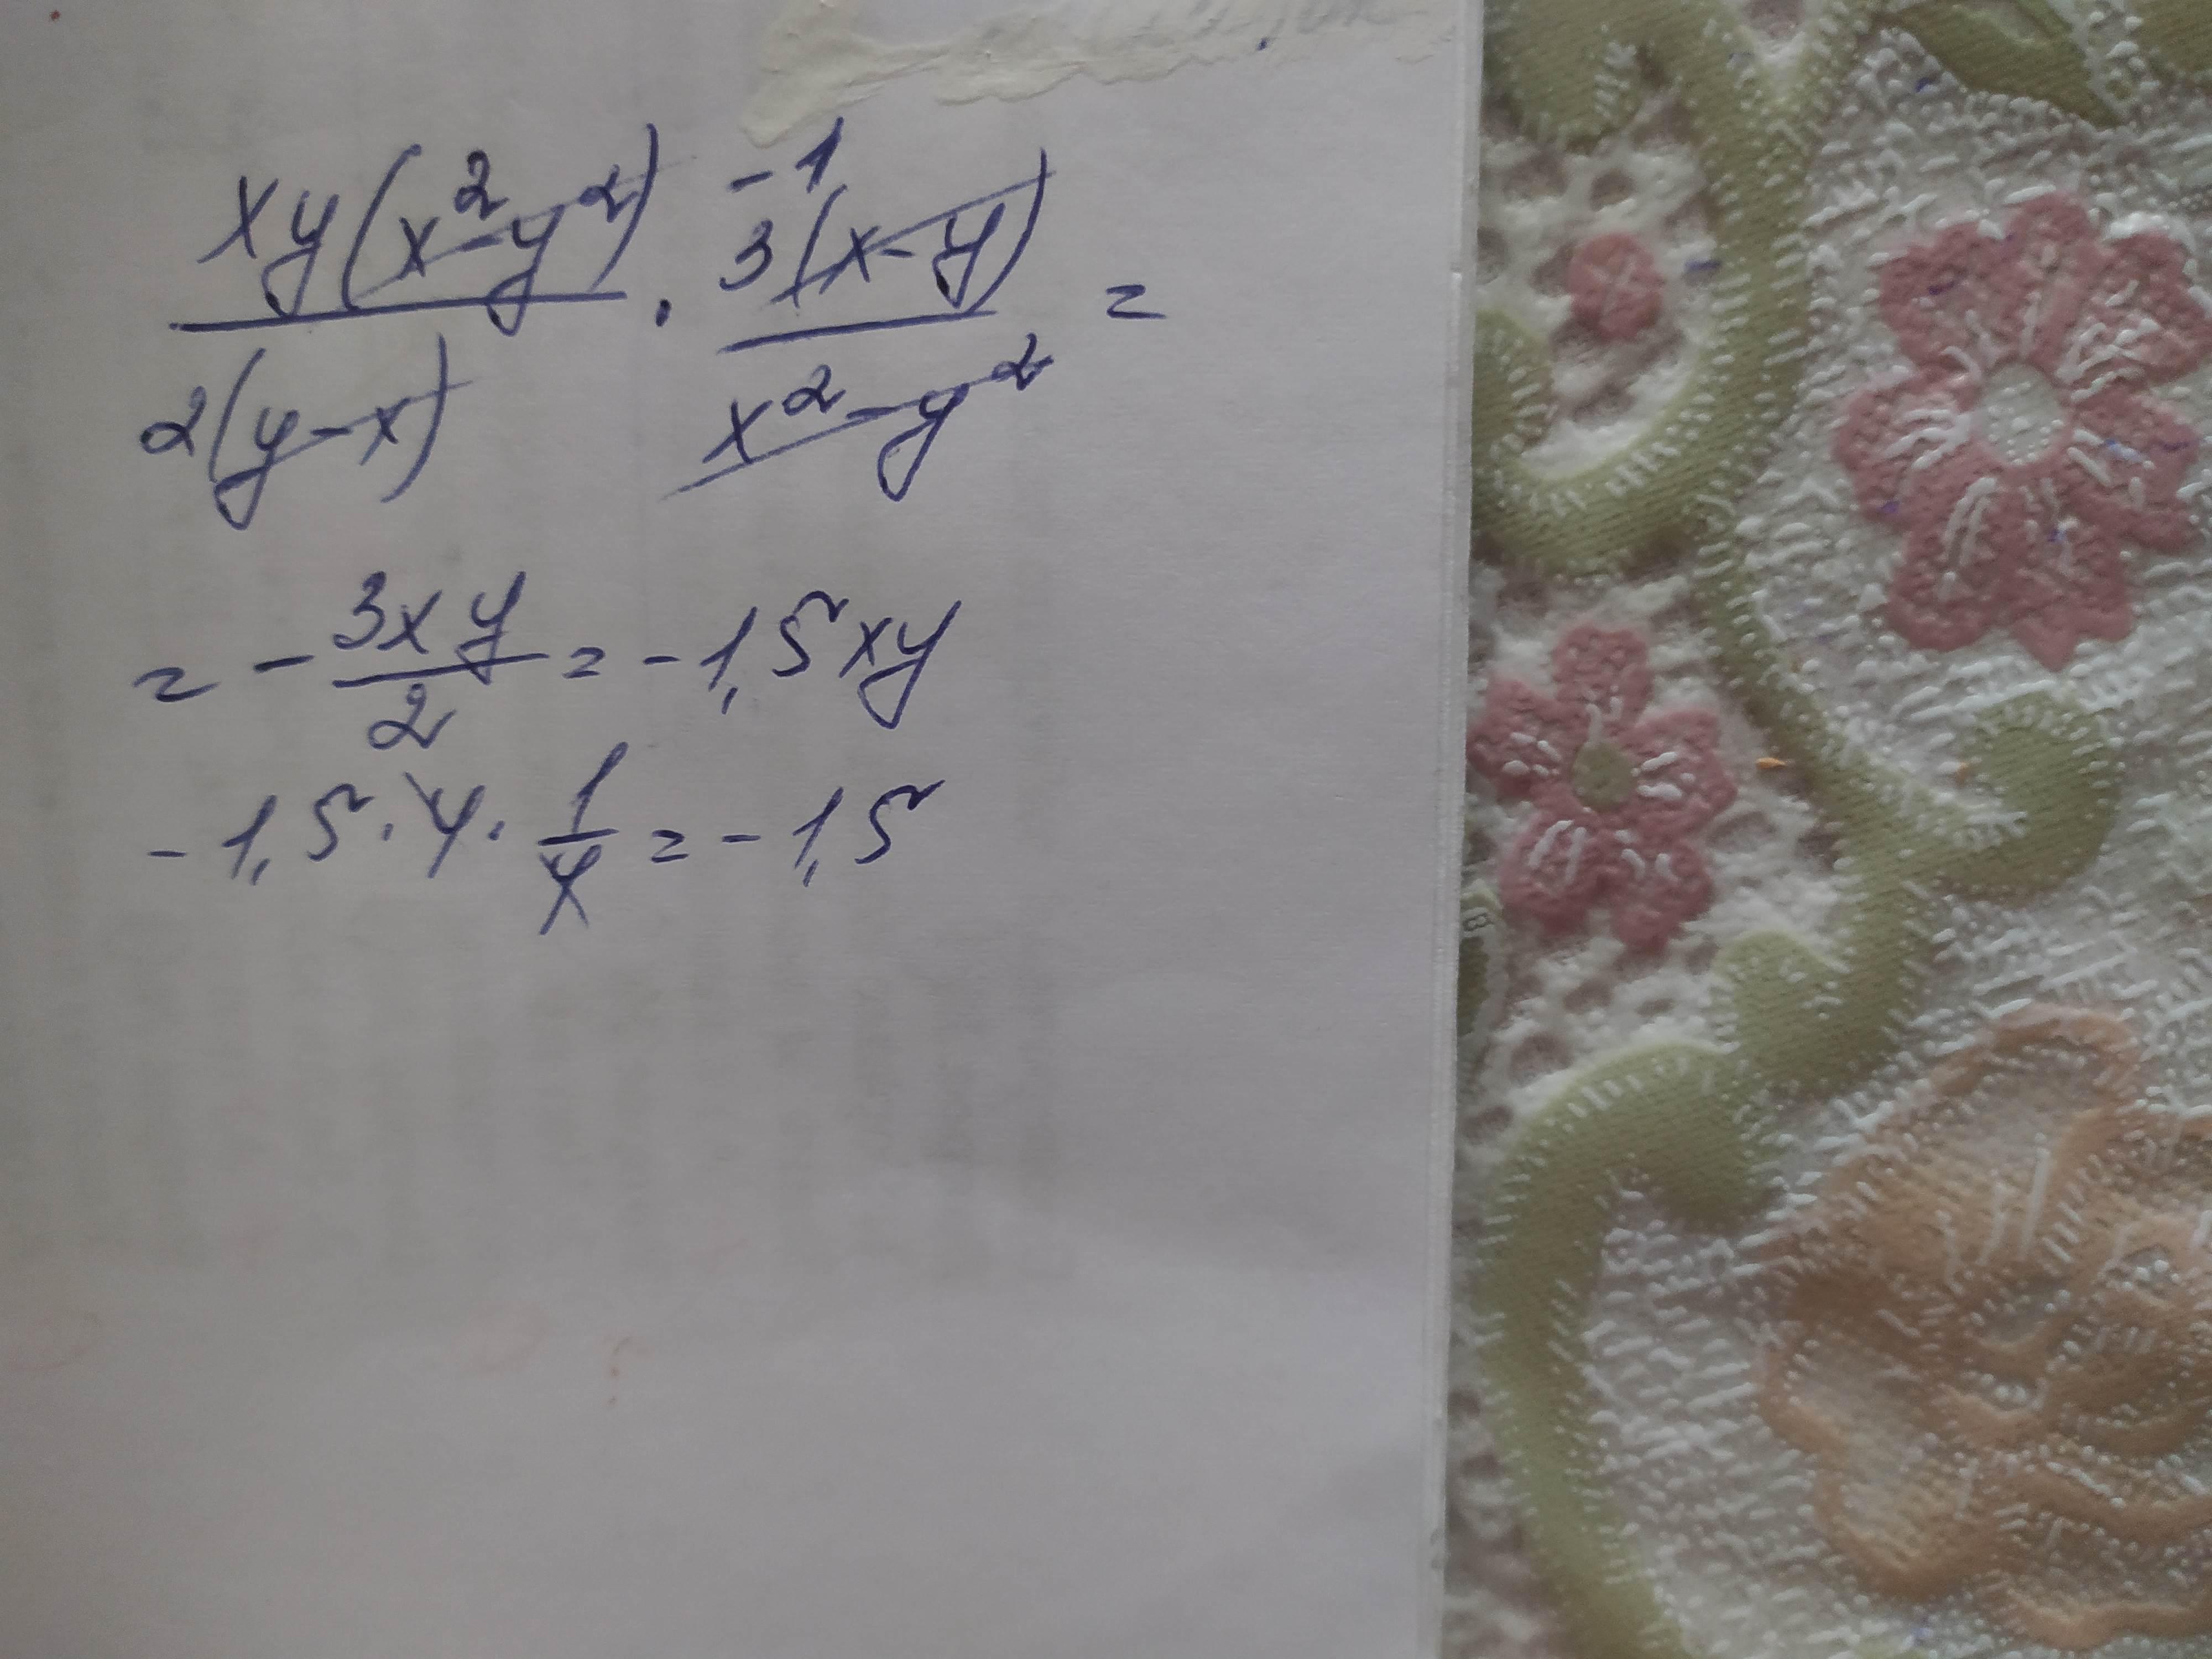 xy(x²-y²)/2(y-x) · -1 3(x-y)/x²-y² =
= - 3xy/2 = -1,5xy
-1,5 · 4 · 1/4 = -1,5